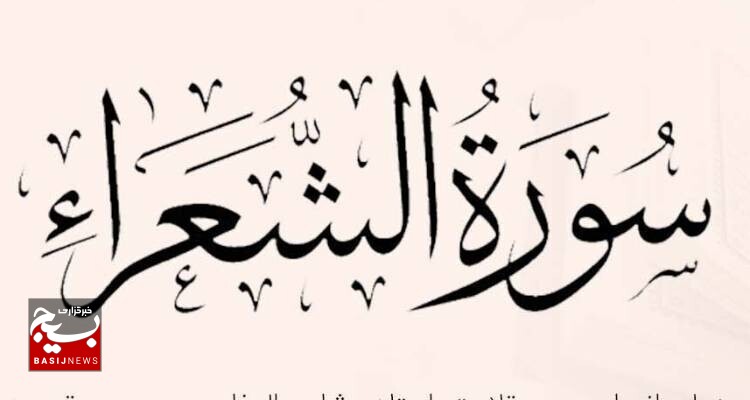 سُورَةُ الشُّعَرَاءِ
خبرگزاری
بسیج
BASIJNEWS